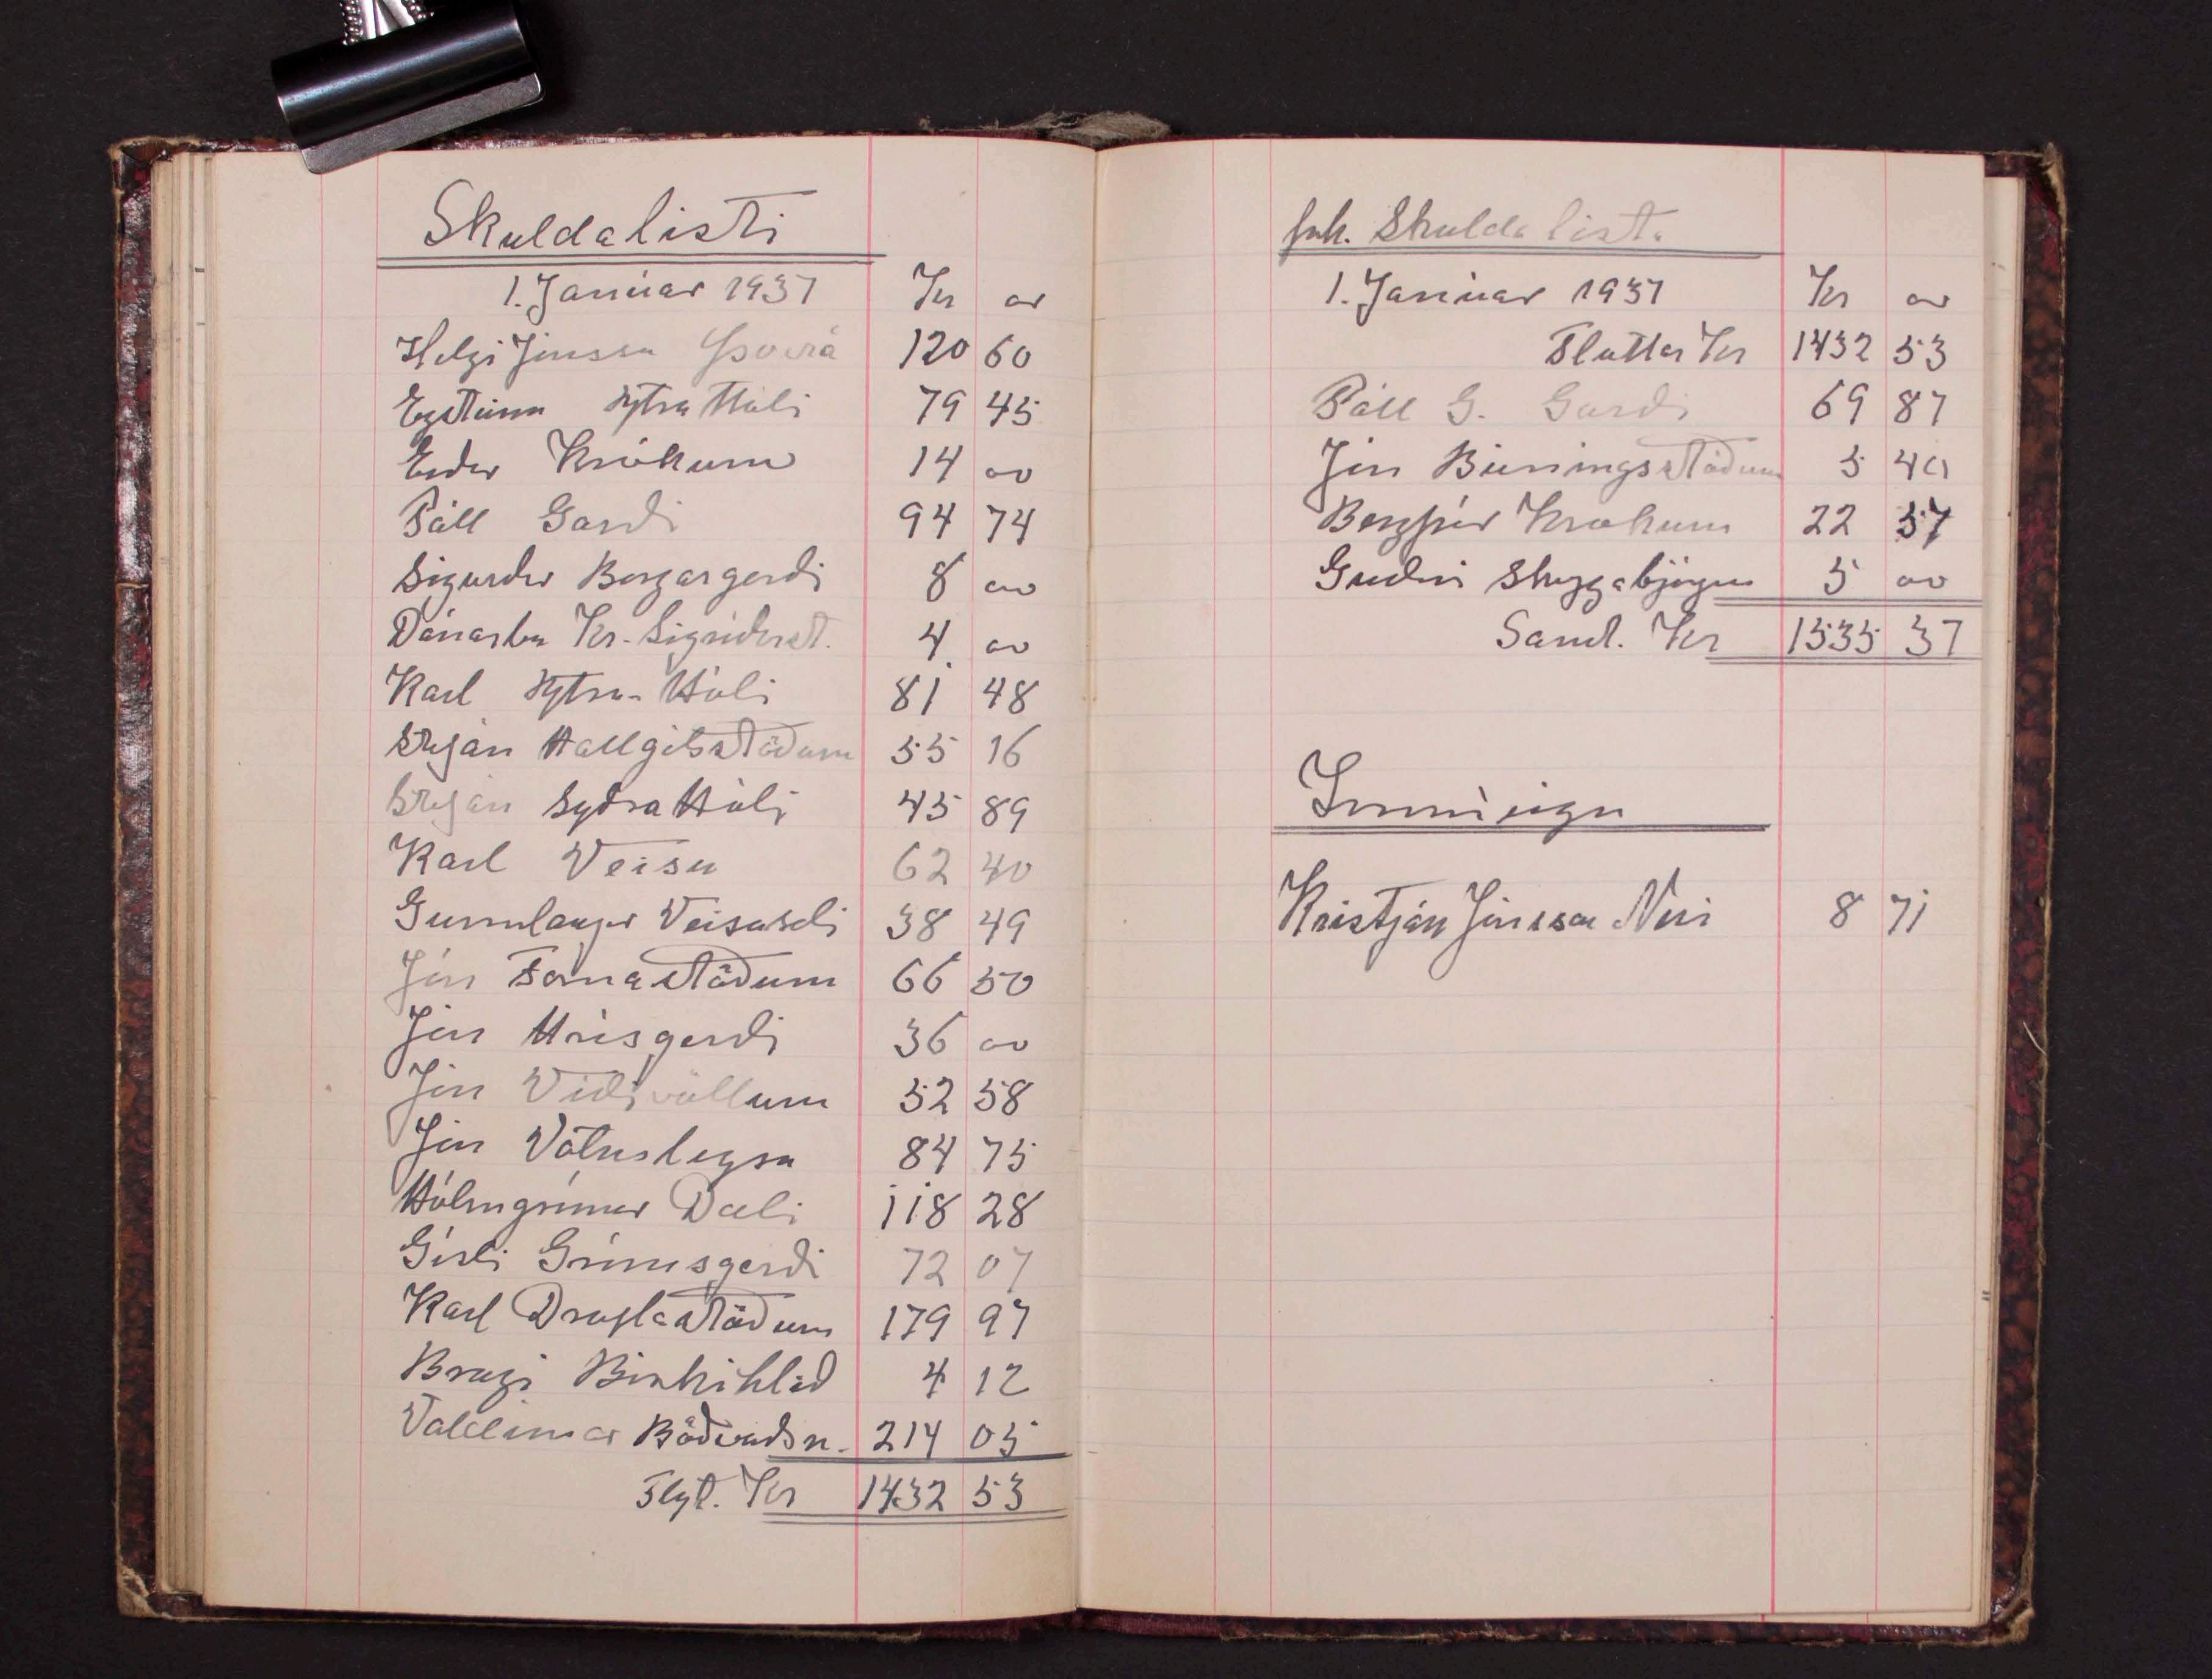 Skuldalisti
1. Janúar 1937 Kr au
Helgi Jónsson Þverá 120 60
Eysteinn Ytra Hóli 79 45
Eiður Krókum 14 00
Páll Garði 94 74
Sigurður Borgargerði 8 00
Dánarbú Kr. Sigríðarst. 4 00
Karl Ytra-Hóli 81 48
Stefán Hallgilsstöðum 55 16
Stefán Syðra Hóli 45 89
Karl Veisu 62 40
Gunnlaugur Veisuseli 38 49
Jón Fornastöðum 66 50
Jón Hrísgerði 36 00
Jón Víðivöllum 52 58
Jón Vatnsleysu 84 75
Hólmgrímur Dæli 118 28
Gísli Grímsgerði 72 07
Karl Draflastöðum 179 97
Bragi Birkihlíð 4 12
Valdimar Böðvarðsn. 214 05
Flyt. Kr 1432 53
frh. Skuldalist.
1. Janúar 1937 Kr au
Fluttar Kr 1432 53
Páll G. Garði 69 87
Jón Birningsstöðum 5 40
Bergþór Krókum 22 57
Guðni Skuggabjörgum 5 00
Samt. Kr 1535 37
Inneign
Kristján Jónsson Nesi 8 71